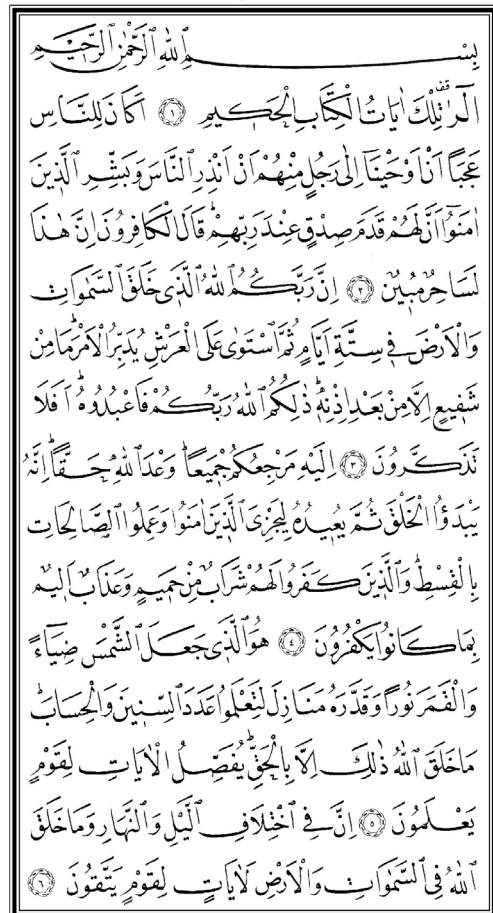 بِسْمِ اللهِ الرَّحْمٰنِ الرَّحِيمِ
الٓرٰ۠ تِلْكَ اٰيَاتُ الْكِتَابِ الْحَكِيمِ ﴿١﴾ اَكَانَ لِلنَّاسِ
عَجَبًا اَنْ اَوْحَيْنَٓا اِلٰى رَجُلٍ مِنْهُمْ اَنْ اَنْذِرِ النَّاسَ وَبَشِّرِ الَّذِينَ
اٰمَنُٓوا اَنَّ لَهُمْ قَدَمَ صِدْقٍ عِنْدَ رَبِّهِمْۜ قَالَ الْكَافِرُونَ اِنَّ هٰذَا
لَسَاحِرٌ مُبِينٌ ﴿٢﴾ اِنَّ رَبَّكُمُ اللهُ الَّذِي خَلَقَ السَّمٰوَاتِ
وَالْاَرْضَ فِي سِتَّةِ اَيَّامٍ ثُمَّ اسْتَوٰى عَلَى الْعَرْشِ يُدَبِّرُ الْاَمْرَۜ مَا مِنْ
شَفِيعٍ اِلَّا مِنْ بَعْدِ اِذْنِهِۜ ذٰلِكُمُ اللهُ رَبُّكُمْ فَاعْبُدُوهُۜ اَفَلَا
تَذَكَّرُونَ ﴿٣﴾ اِلَيْهِ مَرْجِعُكُمْ جَمِيعًاۜ وَعْدَ اللهِ حَقًّاۜ اِنَّهُ
يَبْدَؤُا الْخَلْقَ ثُمَّ يُعِيدُهُ لِيَجْزِيَ الَّذِينَ اٰمَنُوا وَعَمِلُوا الصَّالِحَاتِ
بِالْقِسْطِۜ وَالَّذِينَ كَفَرُوا لَهُمْ شَرَابٌ مِنْ حَمِيمٍ وَعَذَابٌ اَلِيمٌ
بِمَا كَانُوا يَكْفُرُونَ ﴿٤﴾ هُوَ الَّذِي جَعَلَ الشَّمْسَ ضِيَٓاءً
وَالْقَمَرَ نُورًا وَقَدَّرَهُ مَنَازِلَ لِتَعْلَمُوا عَدَدَ السِّنِينَ وَالْحِسَابَۜ
مَا خَلَقَ اللهُ ذٰلِكَ اِلَّا بِالْحَقِّۚ يُفَصِّلُ الْاٰيَاتِ لِقَوْمٍ
يَعْلَمُونَ ﴿٥﴾ اِنَّ فِي اخْتِلَافِ الَّيْلِ وَالنَّهَارِ وَمَا خَلَقَ
اللهُ فِي السَّمٰوَاتِ وَالْاَرْضِ لَاٰيَاتٍ لِقَوْمٍ يَتَّقُونَ ﴿٦﴾